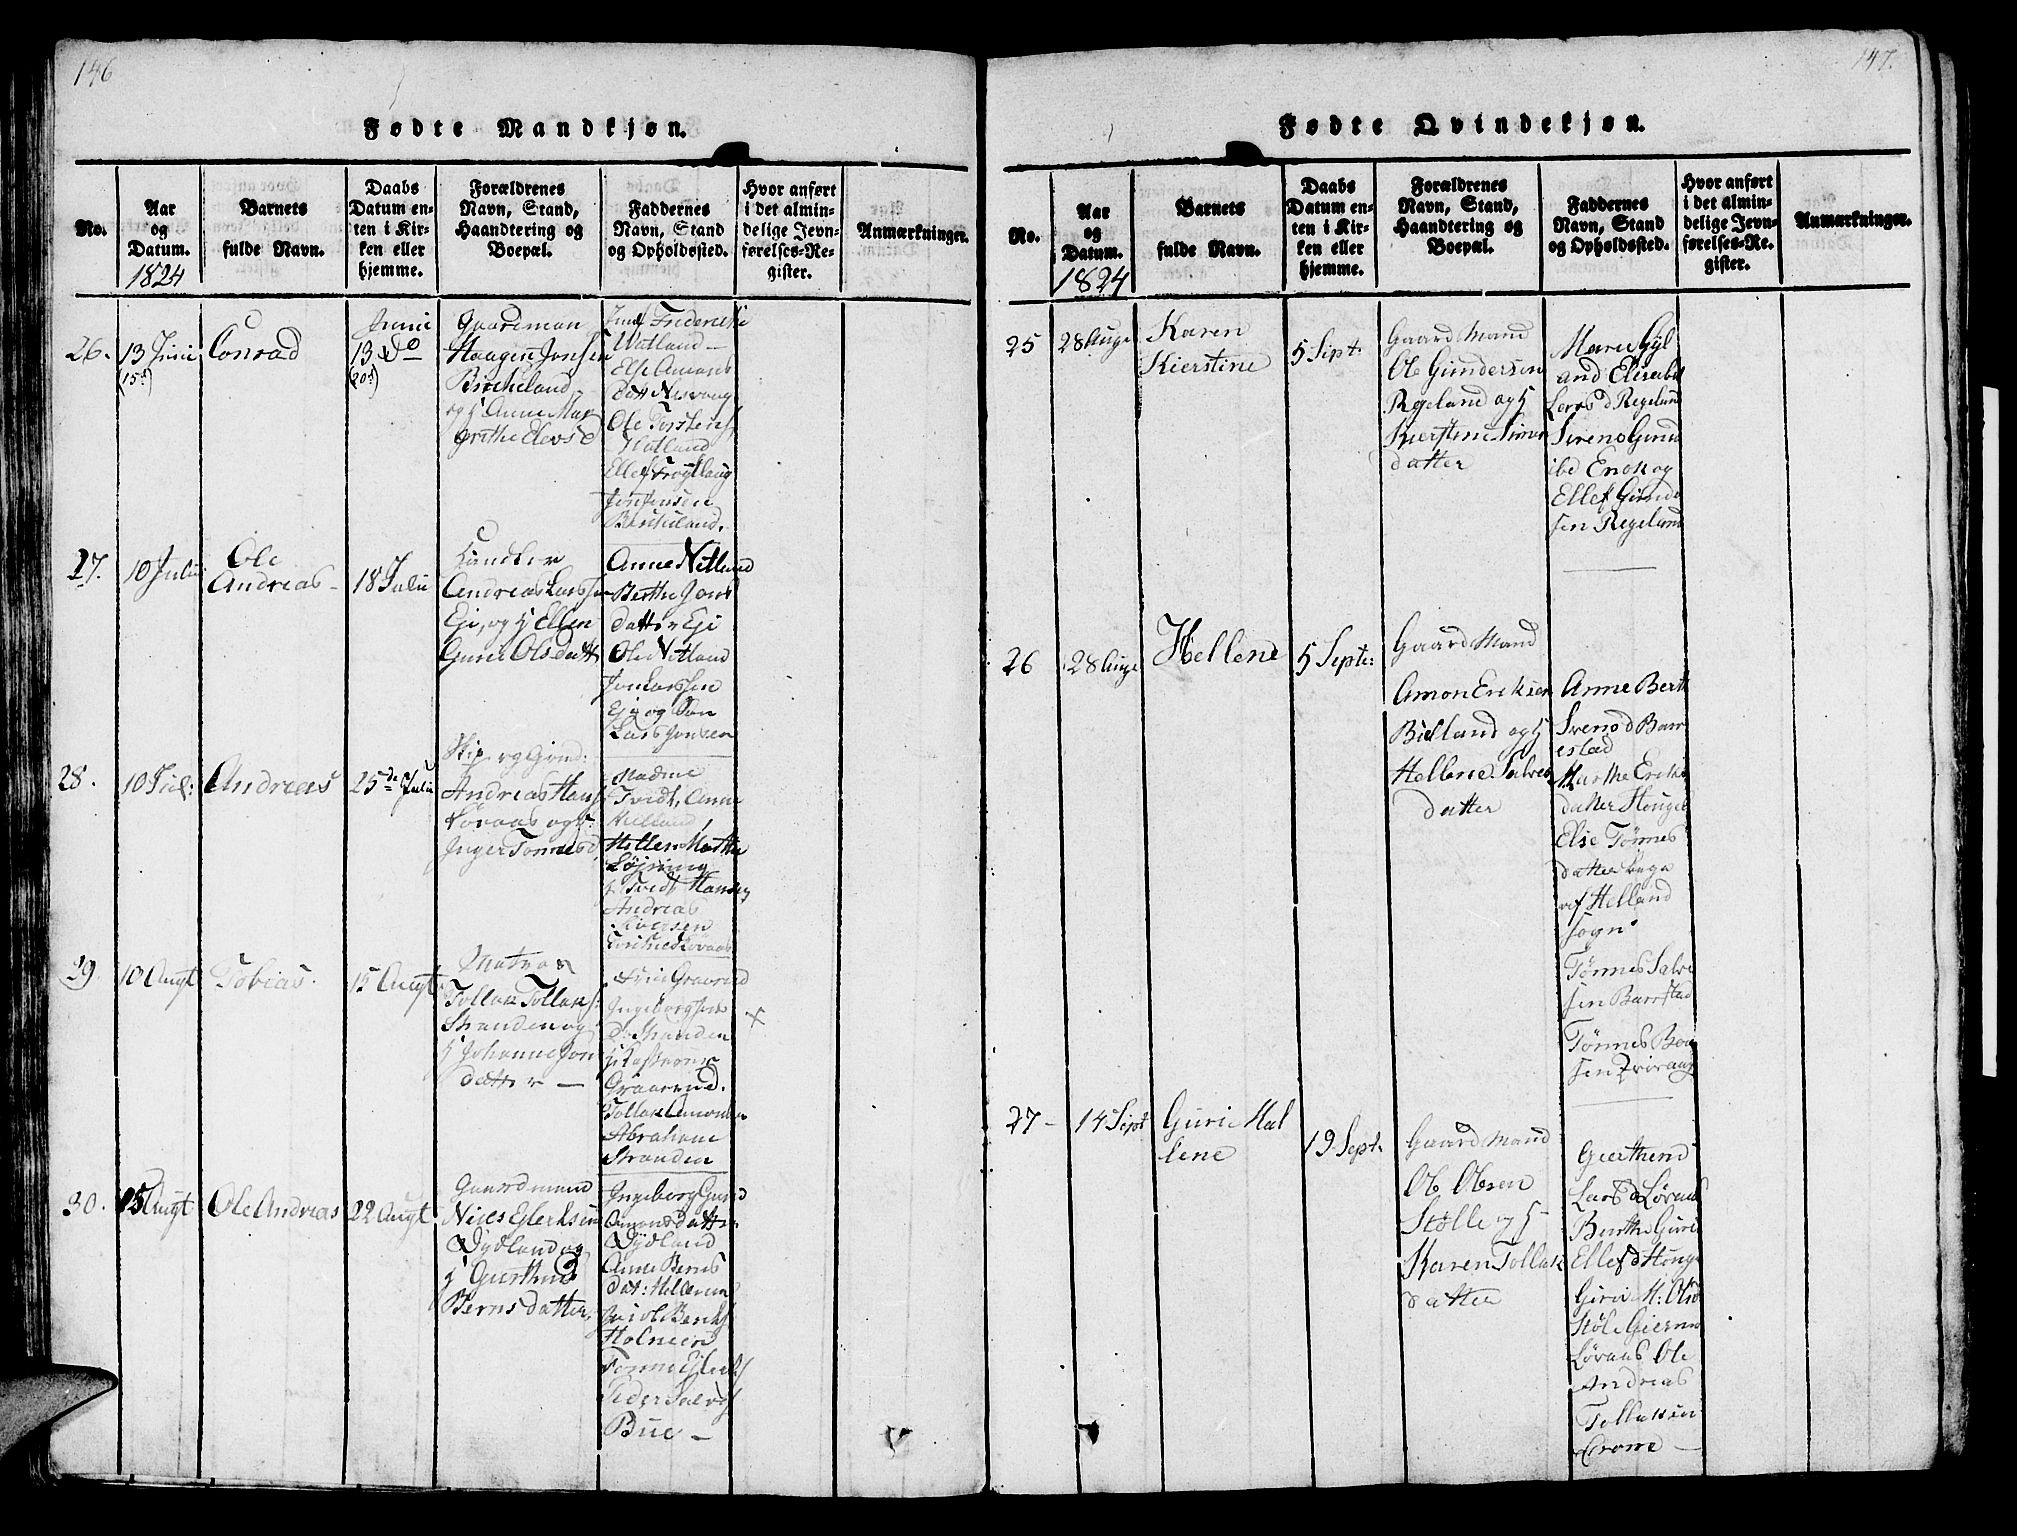 146
Fødte Mandkjøn.
No.
Aar
og
Datum.
1824
Barnets
fulde Navn.
Daabs
Datum en-
ten i Kir-
ken eller
hjemme.
Forældrenes
Navn, Stand,
Haandtering og
Boepæl.
Faddernes
Navn, Stand
og Opholdssted.
Hvor anført
i det almin-
delige Jevn-
førelses-Re-
gister.
Anmærkninger.
26.
13 Juni
(15d)
Conrad
Junii
13 do
(20d)
Gaardman
Haagen Jonsen
Birkeland
og h Anne Mar
grethe Elevsd
Frideriche
Watland
Else Amons
Datt
Ole Torstens
Watland
Ellef
Jon Jensen
Birkeland.
27.
10 Julii
Ole
Andreas
18 Julii
Andreas Larssen
Eje, og h Ellen
Guri Olsdatt
Anne Netland
Berthe Jons
datter Eje
Ole Netland
Jon Larssen
Eje og Jon
Lars Jonsen
28.
10 Jul:
Andreas
25de Julii
Skip og
Andreas Hans
og h:
Inger Tønnesd.
Madme
Tvedt, Anne
Helland,
Hellen Marthe
Tvedt Hans
Andreas
29.
10 Augt
Tobias.
15 Augt
Matros
Tollak Tollaks:
Stranden og
h Johanne Jon
datter —
Ingeborg
d: Stranden
Graarud.
Tollak Amonsen
Abraham
Stranden
×
30.
15 Augt
Ole Andreas
22 Augt
Gaardmand
Niels Eilertsen
Dydland og
h Gierthrud
Berns datter,
Ingeborg Gurid
Amons datter
Dydland
Anne Berns
dat: Helleren
Holmen
Tønne Eilerts
Peder Salves
Bue —
147.
Fødte Qvindekjøn.
No.
Aar
og
Datum.
1824
Barnets
fulde Navn.
Daabs
Datum en-
ten i Kir-
ken eller
hjemme.
Forældrenes
Navn, Stand,
Haandtering og
Boepæl.
Faddernes
Navn, Stand
og Opholdssted.
Hvor anført
i det almin-
delige Jevn-
førelses-Re-
gister.
Anmærkninger.
25
28 Auge
Karen
Kierstine
5 Sept:
Gaard Mand
Ole Gundersen
Regeland og h
Kierstine Simons
datter
Maren Gyl
and Elisabet
Lars d Regeland
Sirens Gund
ibd Enok og
Ellef Gunder
sen Regeland
26
28 Auge
Hellene
5 Septe:
Gaard Mand
Amon Eriksen
Bielland og h
Hellene Salves
datter
Anne Berth
Svens d Barr
estad
Marthe Eriks
datter Houge
Else Tønnes
datter
af Helland
Sogn
Tønnes Salve
sen Barrstad
Tønnes Boy
sen
27 -
14 Sept
Guri Mal
lene
19 Sept.
Gaard Mand
Ole Olsen
Stølle og h
Karen Tollak
datter
Gierthrud
Lars d Løvaas
Berthe Guri
Ellefs d Houge
Guri M: Ols d
Støle Giermu
Løvaas Ole
Andreas
Tollaksen
Crone —